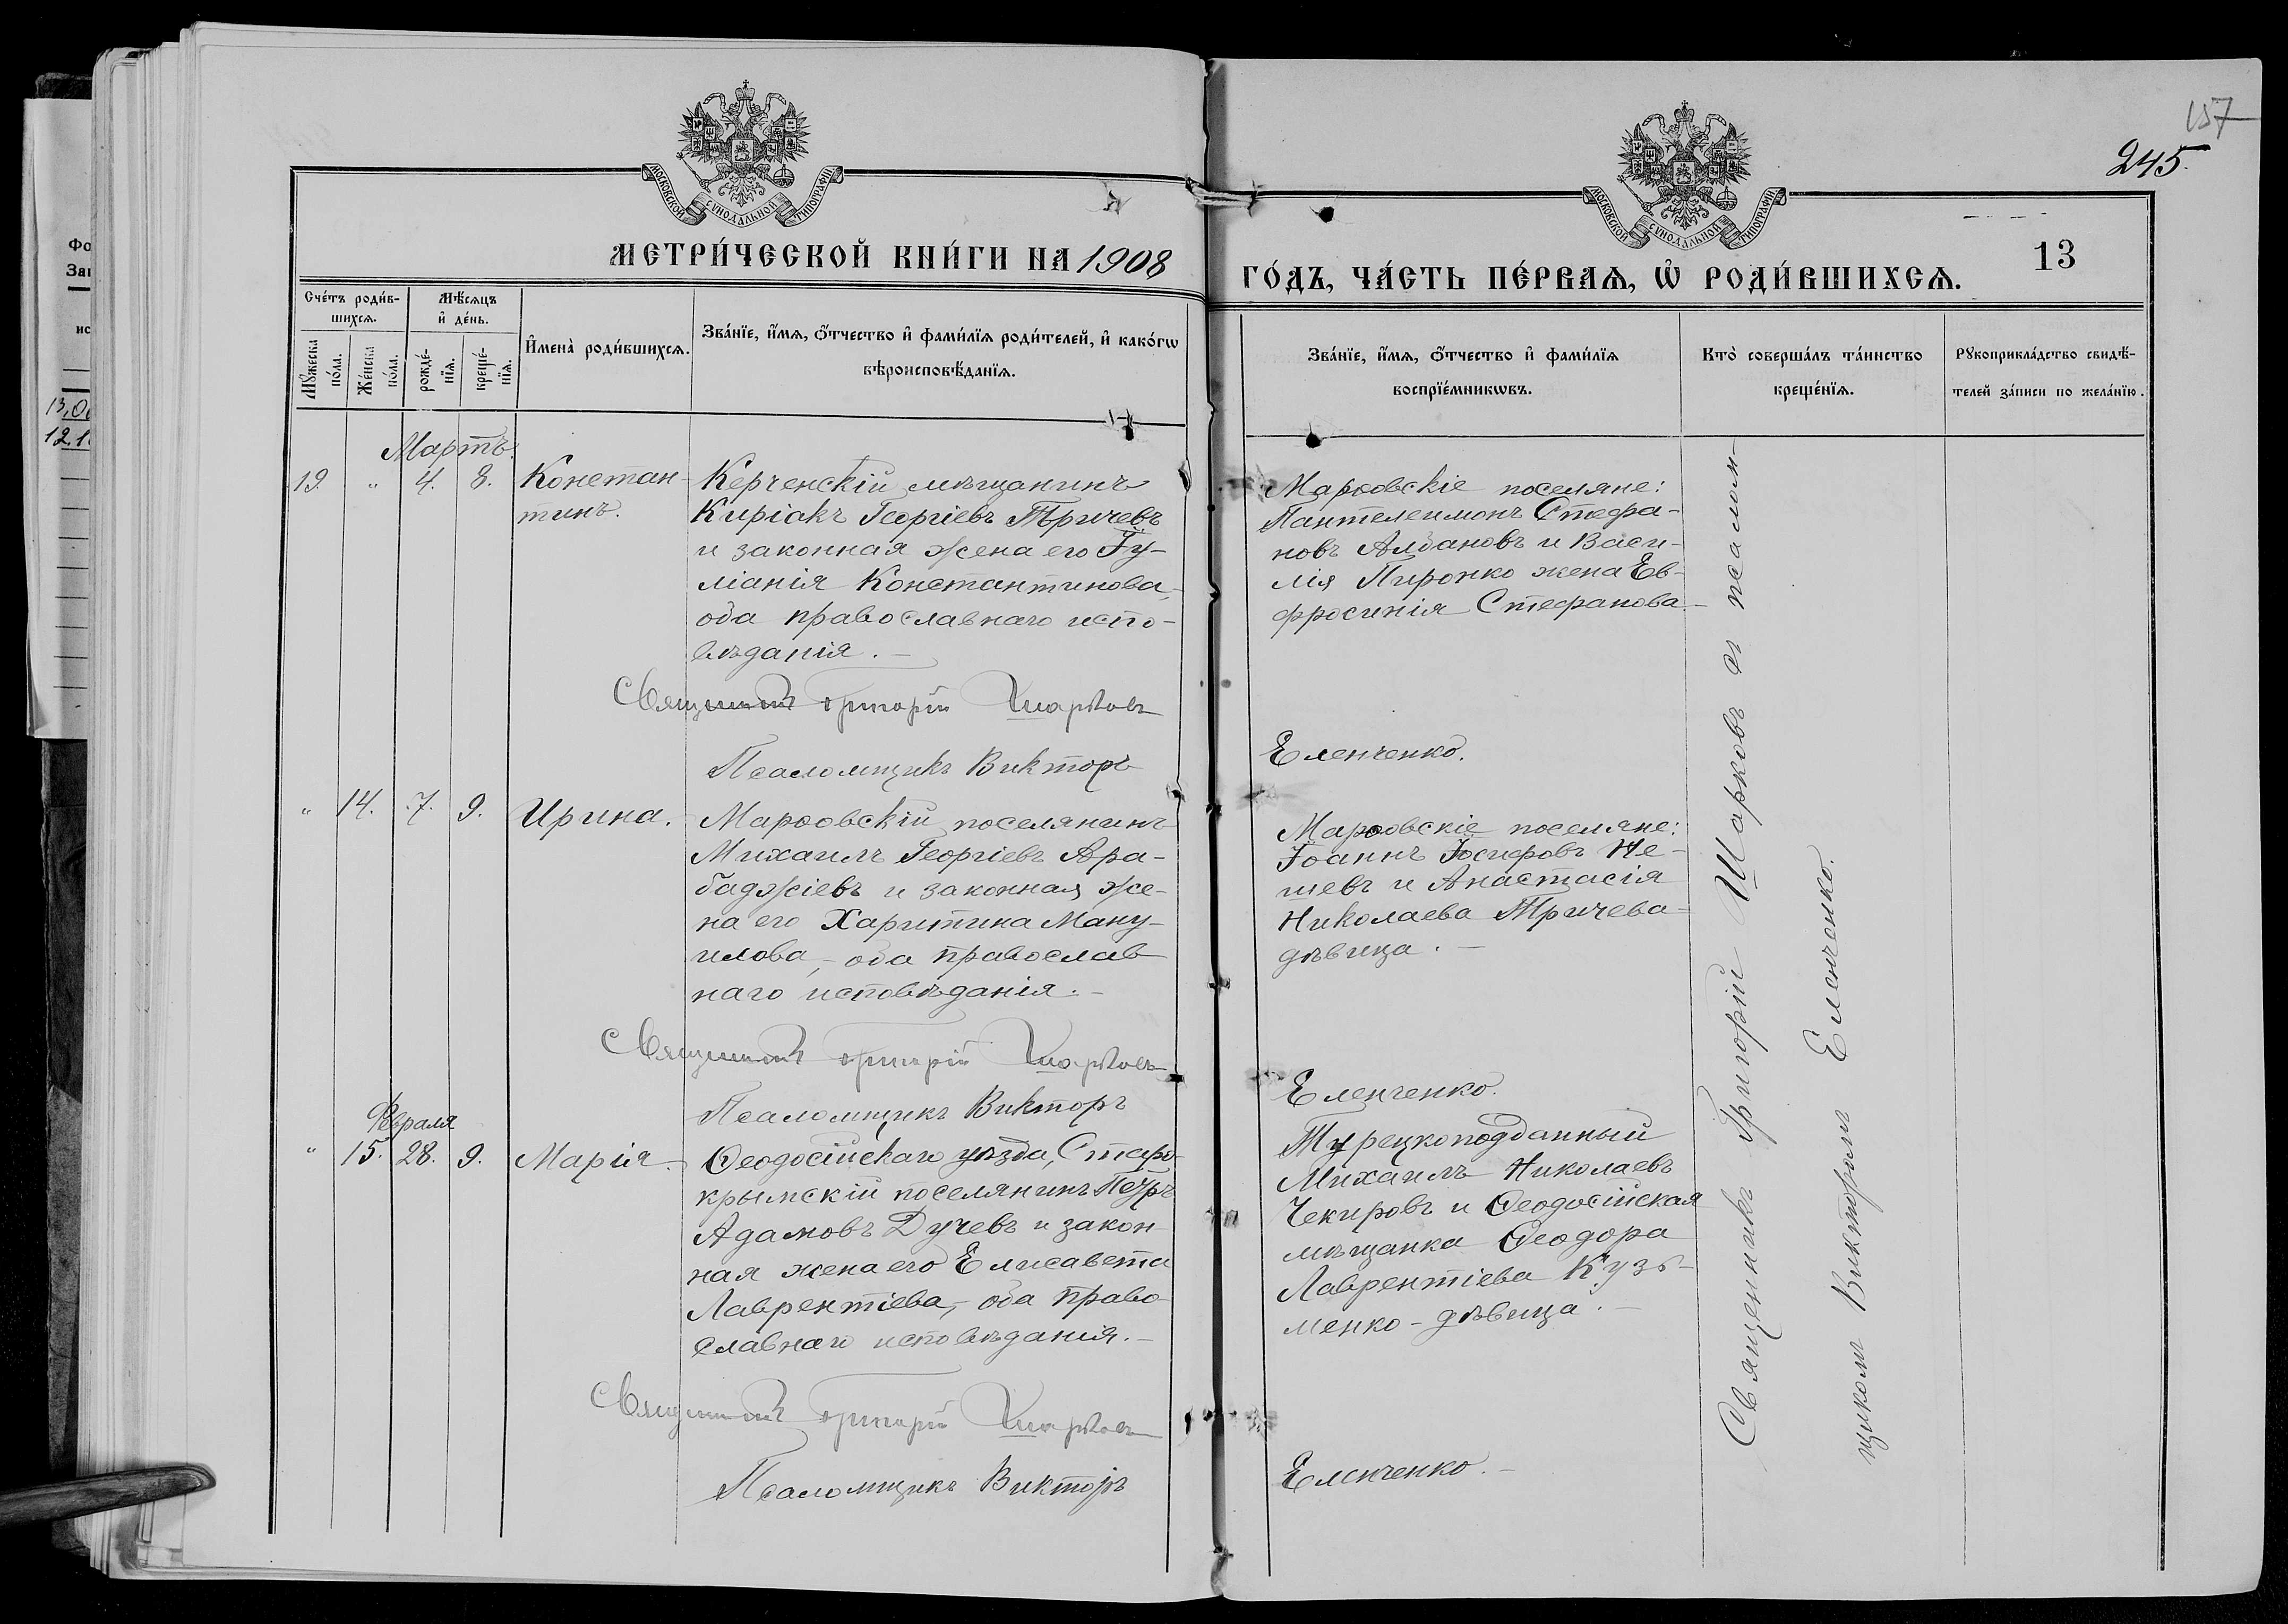 157
245.
МОСКОВСКОЙ СѴНОДАЛЬНОЙ ТИПОГРАФІИ
МОСКОВСКОЙ СѴНОДАЛЬНОЙ ТИПОГРАФІИ
МЕТРИ́ЧЕСКОЙ КНИ́ГИ НА 1908
ГО́ДЪ, ЧА́СТЬ ПЕ́РВАѦ, Ѡ҆ РОДИ́ВШИХСѦ.
13
Сче́тъ роди́в-
шихсѧ.
Мꙋ́жеска
по́ла.
Же́нска
по́ла.
Мѣ́сѧцъ
и҆ де́нь.
рожде́-
нїѧ.
креще́-
нїѧ.
И҆мена̀ роди́вшихсѧ.
Зва́нїе, и҆́мѧ, ѻ҆́тчество и҆ фами́лїѧ роди́телей, и҆ како́гѡ
вѣроисповѣ́данїѧ.
Зва́нїе, и҆́мѧ, ѻ҆́тчество и҆ фами́лїѧ
воспрїе́мникѡвъ.
Кто̀ соверша́лъ та́инство
креще́нїѧ.
Рꙋкоприкла́дство свидѣ́-
телей за́писи по жела́нїю.
Мартъ.
19. " 4. 8. Констан-
тинъ.
Керченскій мѣщанинъ
Киріакъ Георгіевъ Тричевъ
и законная жена его Іу-
ліанія Константинова,
оба православнаго испо-
вѣданія. —
Священникъ Григорій Шарковъ
Псаломщикъ Викторъ
Марѳовскіе поселяне:
Пантелеимонъ Стефа-
новъ Албановъ и Васи-
лія Пиронко жена Ев-
фросинія Стефанова. —
Еленченко.
" 14. 7. 9. Ирина.
Марѳовскій поселянинъ
Михаилъ Георгіевъ Ара-
баджіевъ и законная же-
на его Харитина Ману-
илова, — оба православ
наго исповѣданія. —
Священникъ Григорій Шарковъ
Псаломщикъ Викторъ
Марѳовскіе поселяне:
Іоаннъ Іосифовъ Не-
шевъ и Анастасія
Николаева Тричева —
дѣвица. —
Еленченко.
Февраля
" 15. 28. 9. Марія.
Ѳеодосійскаго уѣзда, Старо-
крымскій поселянинъ Петръ
Адамовъ Дучевъ и закон
ная жена его Елисавета
Лаврентіева, — оба право
славнаго исповѣданія. —
Священникъ Григорій Шарковъ
Псаломщикъ Викторъ
Турецкоподданный
Михаилъ Николаевъ
Чекировъ и Ѳеодосійская
мѣщанка Ѳеодора
Лаврентіева Кузь-
менко - дѣвица. —
Еленченко. —
Священникъ Григорій Шарковъ съ псалом-
щикомъ Викторомъ Еленченко.